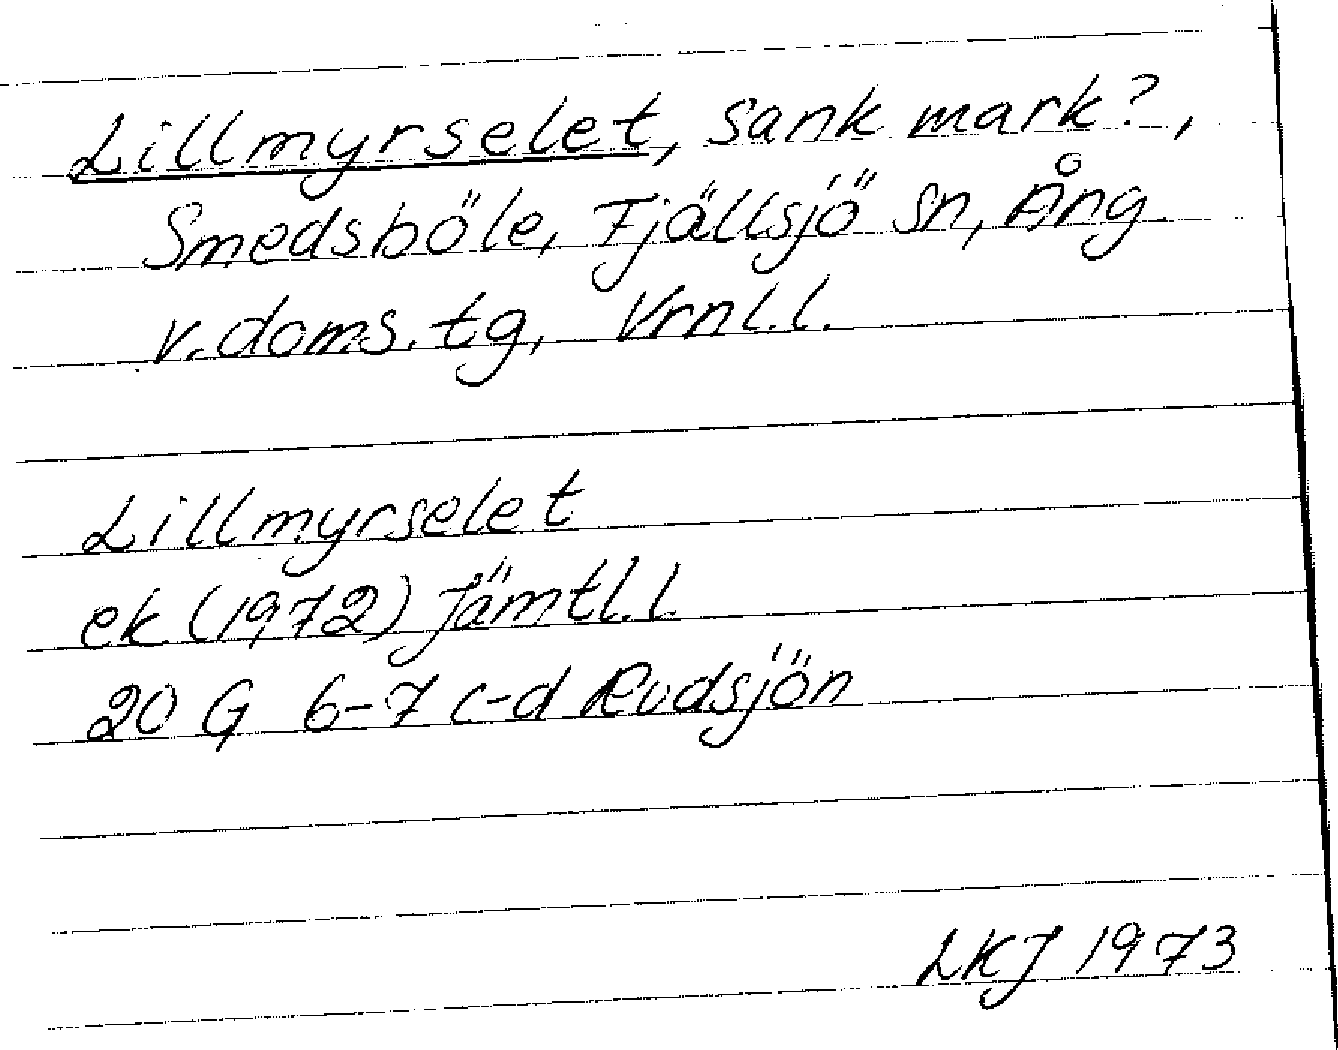 Lillmyrselet, sank mark?,
Smedsböle, Fjällsjö sn, Ång
v. doms. tg, Vrnl.l.
Lillmyrselet
ek (1972) Jämtl.l.
20 G 6-7 c-d Rudsjön
LKJ 1973